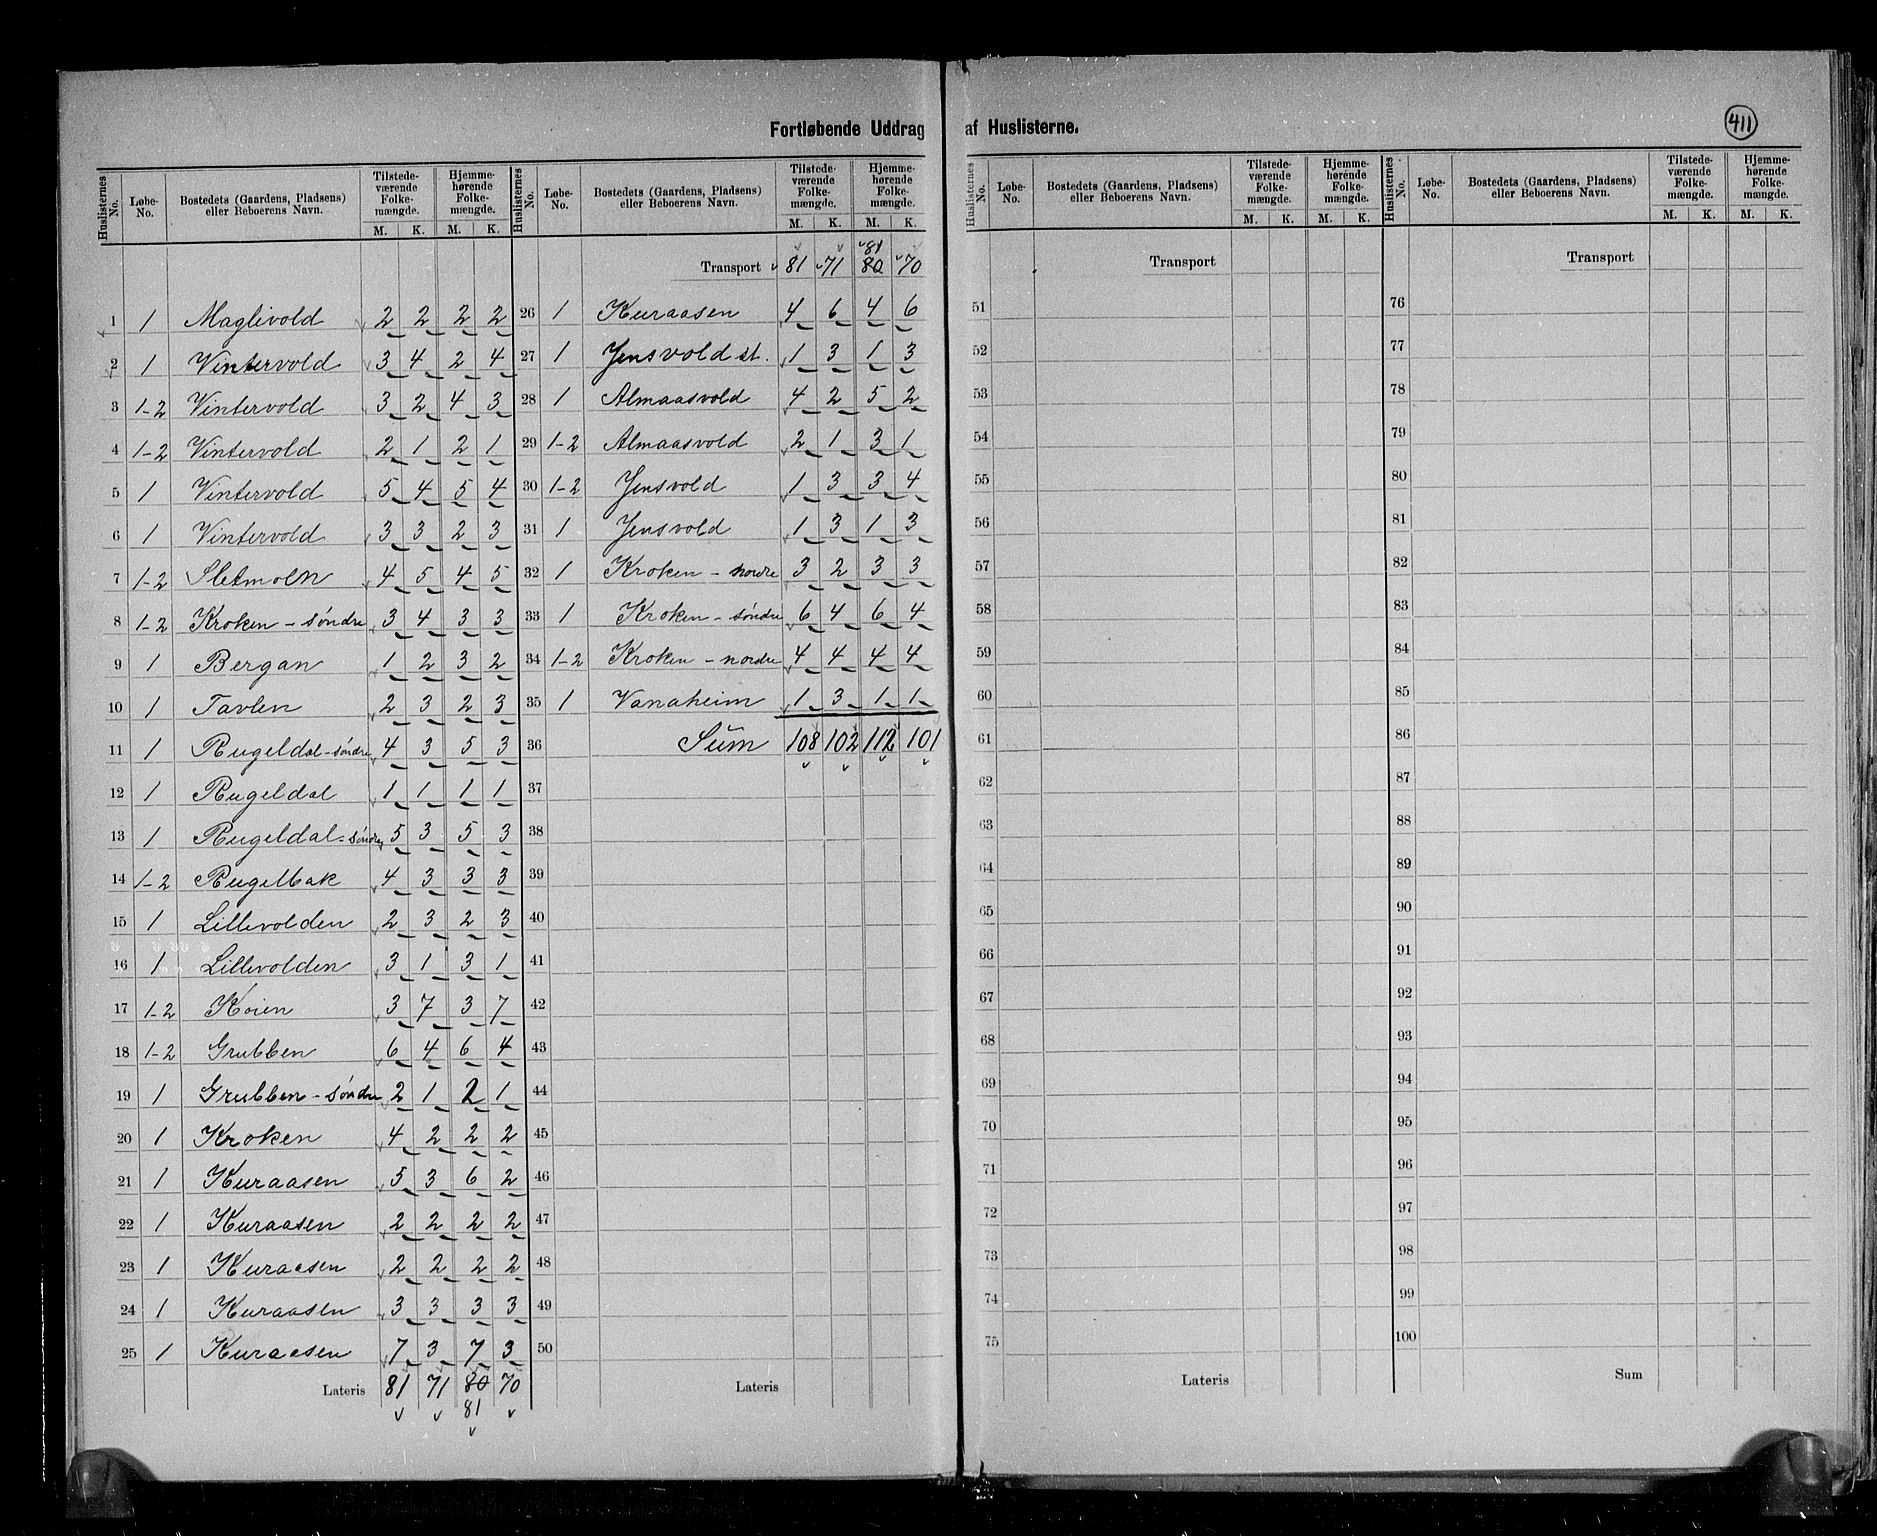 Fortløbende Uddrag af Huslisterne.
411
Huslisternes No. Løbe-No. Bostedets (Gaardens, Pladsens) eller Beboerens Navn. Tilstedeværende Folkemængde. M. K. Hjemmehørende Folkemængde. M. K.
1 1 Maglivold 2 2 2 2
2 1 Vintervold 3 4 2 4
3 1-2 Vintervold 3 2 4 3
4 1-2 Vintervold 2 1 2 1
5 1 Vintervold 5 4 5 4
6 1 Vintervold 3 3 2 3
7 1-2 Sletmoen 4 5 4 5
8 1-2 Kroken - søndre 3 4 3 3
9 1 Bergan 1 2 3 2
10 1 Tavlen 2 3 2 3
11 1 Rugeldal - søndre 4 3 5 3
12 1 Rugeldal 1 1 1 1
13 1 Rugeldal - søndre 5 3 5 3
14 1-2 Rugelbak 4 3 3 3
15 1 Lillevolden 2 3 2 3
16 1 Lillevolden 3 1 3 1
17 1-2 Koien 3 7 3 7
18 1-2 Grubben 6 4 6 4
19 1 Grubben - søndre 2 1 2 1
20 1 Kroken 4 2 2 2
21 1 Kuraasen 5 3 6 2
22 1 Kuraasen 2 2 2 2
23 1 Kuraasen 2 2 2 2
24 1 Kuraasen 3 3 3 3
25 1 Kuraasen 7 3 7 3
Lateris 81 71 80 70
81
Huslisternes No. Løbe-No. Bostedets (Gaardens, Pladsens) eller Beboerens Navn. Tilstedeværende Folkemængde. M. K. Hjemmehørende Folkemængde. M. K.
81
Transport 81 71 80 70
26 1 Kuraasen 4 6 4 6
27 1 Jensvold st. 1 3 1 3
28 1 Almaasvold 4 2 5 2
29 1-2 Almaasvold 2 1 3 1
30 1-2 Jensvold 1 3 3 4
31 1 Jensvold 1 3 1 3
32 1 Kroken - nordre 3 2 3 3
33 1 Kroken - søndre 6 4 6 4
34 1-2 Kroken - nordre 4 4 4 4
35 1 Vanaheim 1 3 1 1
36 Sum 108 102 112 101
37
38
39
40
41
42
43
44
45
46
47
48
49
50
Lateris
Huslisternes No. Løbe-No. Bostedets (Gaardens, Pladsens) eller Beboerens Navn. Tilstedeværende Folkemængde. M. K. Hjemmehørende Folkemængde. M. K.
Transport
51
52
53
54
55
56
57
58
59
60
61
62
63
64
65
66
67
68
69
70
71
72
73
74
75
Lateris
Huslisternes No. Løbe-No. Bostedets (Gaardens, Pladsens) eller Beboerens Navn. Tilstedeværende Folkemængde. M. K. Hjemmehørende Folkemængde. M. K.
Transport
76
77
78
79
80
81
82
83
84
85
86
87
88
89
90
91
92
93
94
95
96
97
98
99
100
Sum